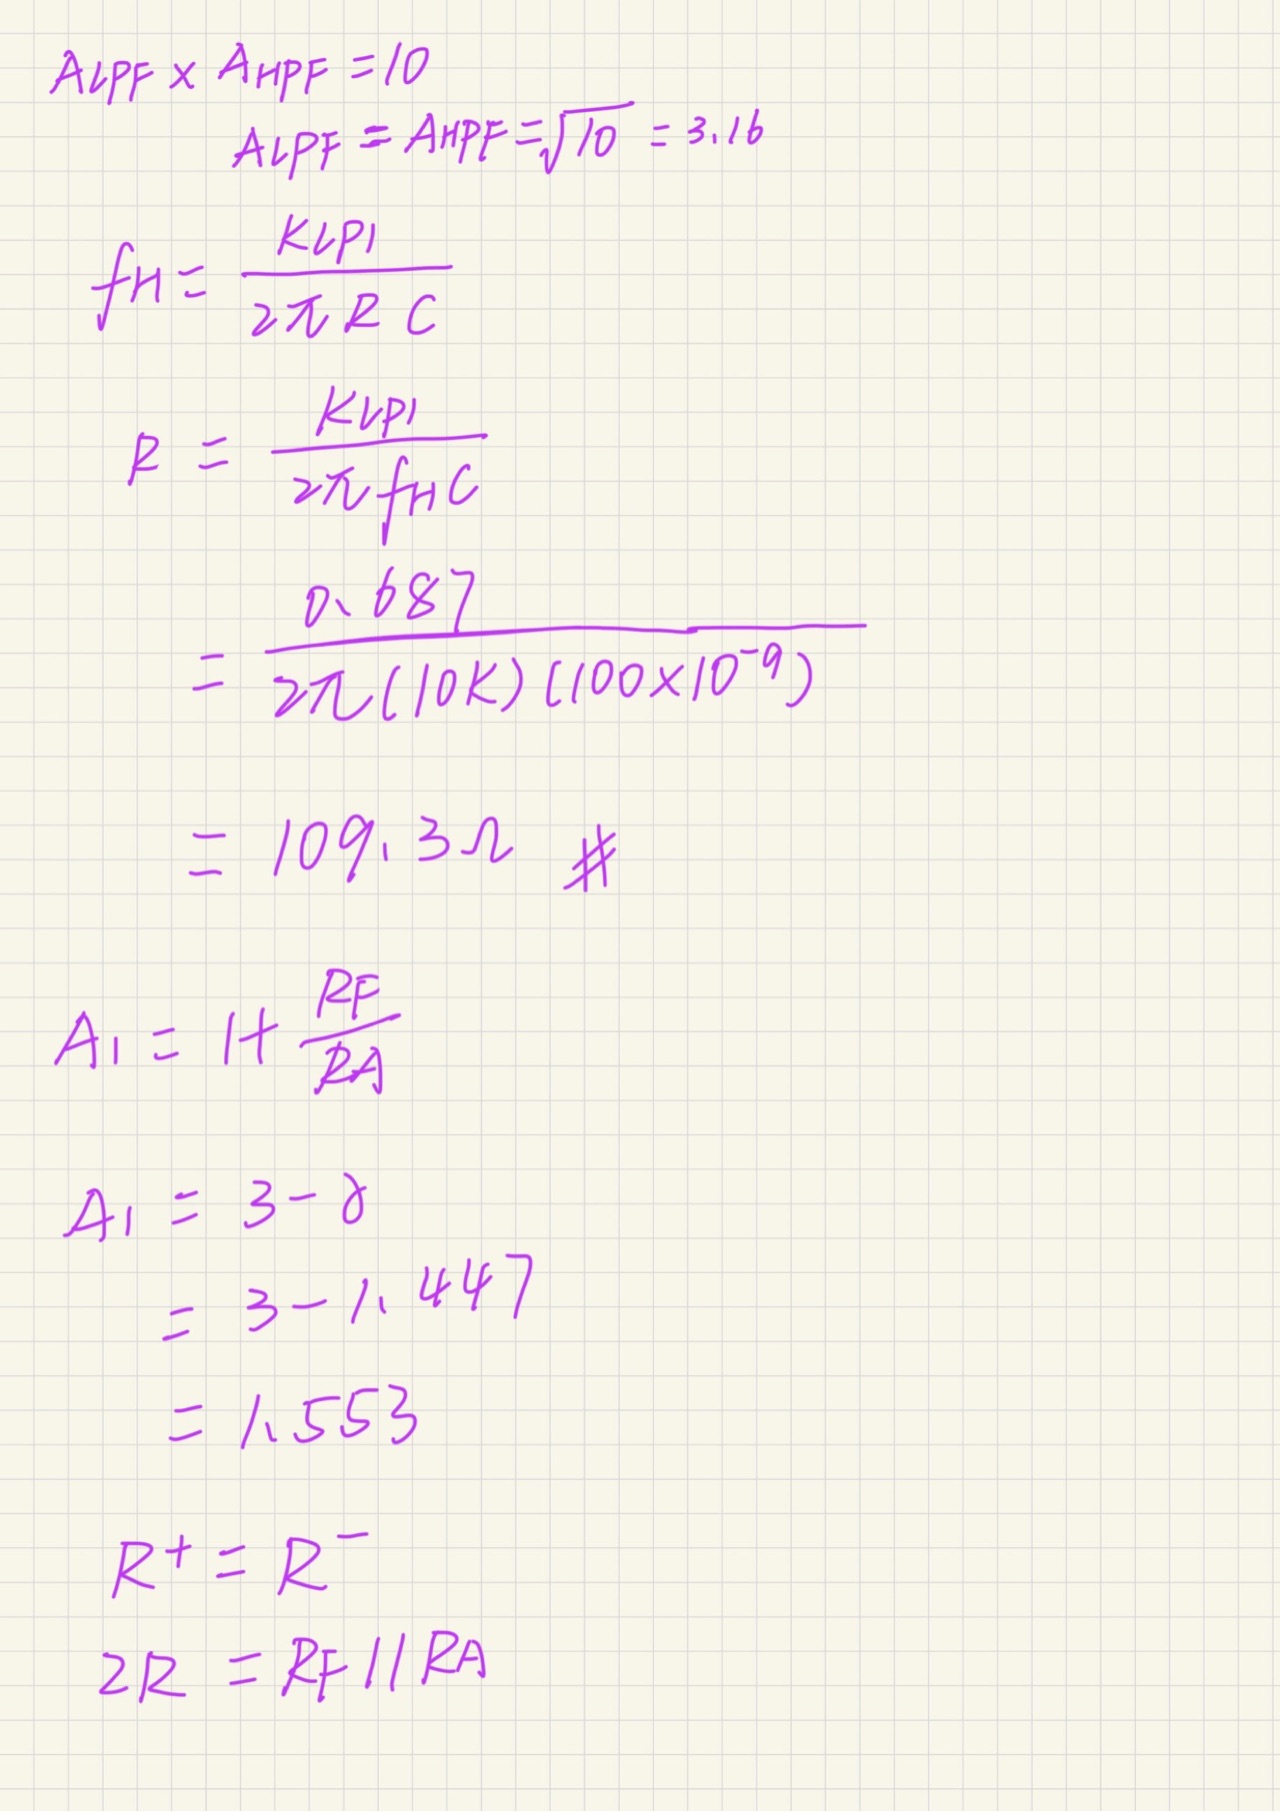 ALPF × AHPF = 10
ALPF = AHPF = √10 = 3.16
fH = KLP1 / 2π R C
R = KLP1 / 2π fH C
= 0.687 / 2π(10K)(100×10⁻⁹)
= 109.3Ω #
A1 = 1+ RF / RA
A1 = 3-γ
= 3-1.447
= 1.553
R⁺ = R⁻
2R = RF // RA